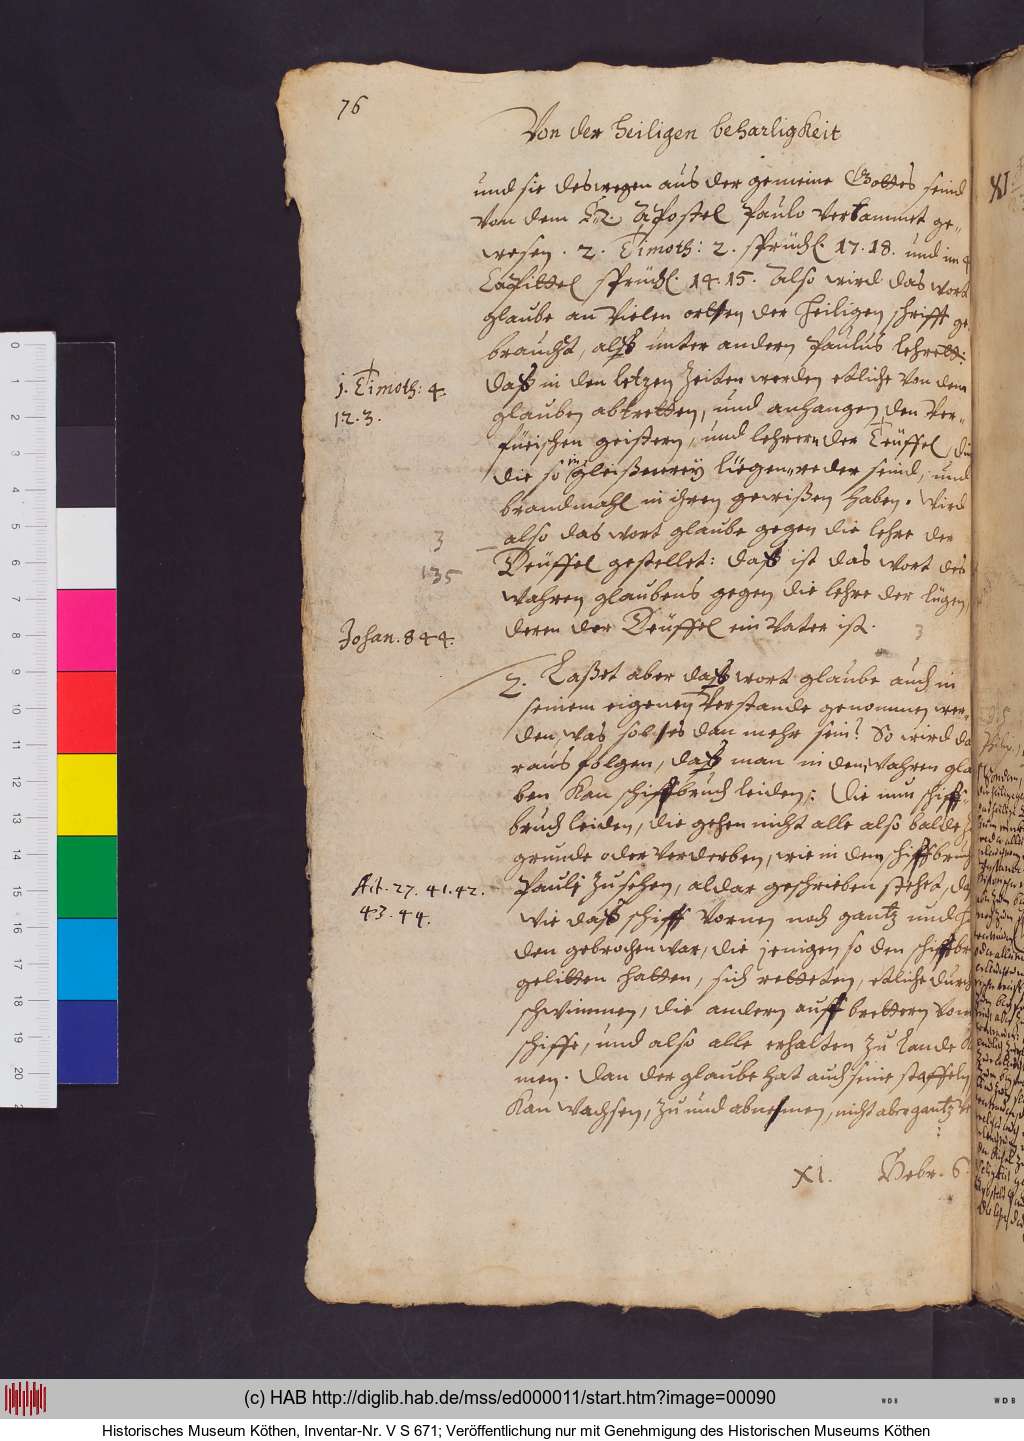 76
Von der heiligen beharligkeit
und sie deswegen aus der gemeine Gottes seind
von dem H. Apostel Paulo verbannet ge-
wesen. 2. Timoth: 2. sprüchl. 17. 18. und im 4
Capittel sprüchl. 14. 15. Also wird das wort
glaube an vielen orten der heiligen schrifft ge
braucht, alß unter andern Paulus lehrett:
1. Timoth: 4.
1. 2. 3.
daß in den letzen zeiten werden etliche von dem
glauben abtretten, und anhangen den ver-
füeischen geistern, und lehren der Teüffel, die
die so in gleißnerey lüegen-reder seind, und
brandmahl in ihren gewißen haben. Wird
also das wort glaube gegen die lehre der
3
135
Deüffel gestellet: daß ist das wort des
wahren glaubens gegen die lehre der lügen,
Johan. 8 44.
deren der Deüffel ein vater ist.
3
2. Laßet aber daß wort glaube auch in
seinem eigenen verstande genommen wer-
den, was sol es dan mehr sein? So wird da
raus folgen, daß man in dem wahren glau
ben kan schiffbruch leiden: Die nun schiff-
bruch leiden, die gehen nicht alle also balde zu
grunde oder verderben, wie in dem schiffbruch
Act. 27. 41. 42.
43. 44.
Pauli zu sehen, aldar geschrieben stehet, daß
wie daß schiff vornen noch gantz und
den gebrochen war, die jenigen so den schiffbr
gelitten hatten, sich retteten, etliche durch
schwimmen, die andern auff brettern vom
schiffe, und also alle erhalten zu lande
men. Dan der glaube hat auch seine staffeln
kan wachsen, zu und abnehmen, nicht aber gantz
XI. Hebr. 6
XI
(c) HAB http://diglib.hab.de/mss/ed000011/start.htm?image=00090
Historisches Museum Köthen, Inventar-Nr. V S 671; Veröffentlichung nur mit Genehmigung des Historischen Museums Köthen